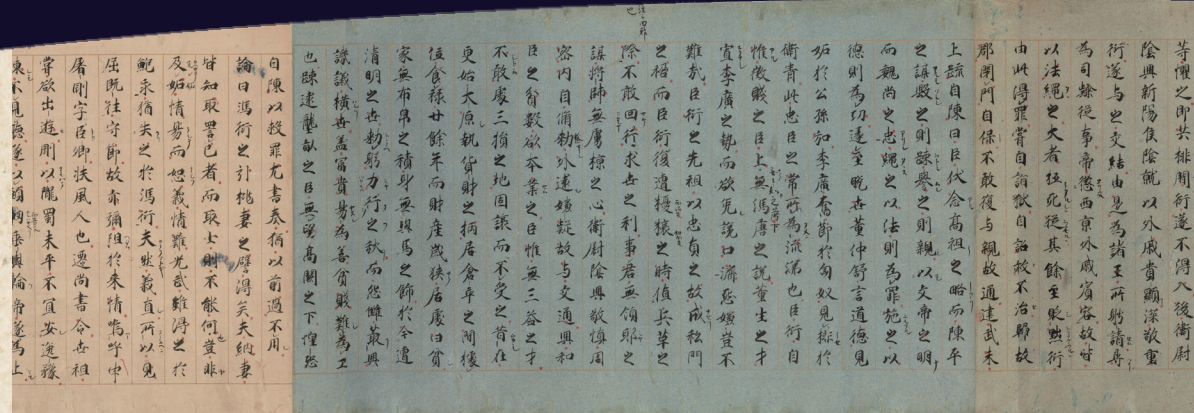 等懼之即共排閒衍遂不得入後衛尉
陰興新陽侯陰就以外戚貴顯深敬重
衍遂与之交結由是為諸王所聘請尋
為司隸從事帝懲西京外戚賓客故皆
以法繩之大者抵死徙其餘至貶黜衍
由此得罪嘗自詣獄有詔赦不治歸故
郡閇門自保不敢復与親故通建武末
上疏自陳曰臣伏念高祖之略而陳平
之謀毀之則踈譽之則親以文帝之明
而魏尚之忠繩之以法則為罪施之以
德則為功逮至晚世董仲舒言道德見
妬於公孫弘李廣奮節於匈奴見排於
衛青此忠臣之常所為流涕也臣衍自
惟微賤之臣上無馮唐之說董生之才
寡李廣之勢而欲免讒口濟怨嫌豈不
難哉臣衍之先祖以忠貞之故成私門
之禍而臣衍復遭擾攘之時值兵革之
際不敢回行求世之利事君無傾邪之
謀將帥無虜掠之心衛尉陰興敬慎周
密內自脩勑外遠嫌疑故与交通興知
臣之貧數欲本業之臣惟無三益之才
不敢處三損之地固讓而不受之昔在
更始大原執貨財之柄居倉卒之間據
位食祿廿餘年而財產歲狹居處日貧
家無布帛之積身無輿馬之飾於今遭
清明之世勑躬力行之秋而怨讎叢興
譏議橫世蓋富貴易為善貧賤難為工
也踈遠壟畝之臣無望高闕之下惶恐
自陳以救罪尤書奏猶以前過不用
論曰馮衍之引挑妻之譬得矣夫納妻
皆知取詈己者而取士則不能何豈非
反妬情易而恕義情難光武雖得之於
鮑永猶失之於馮衍夫然義直所以見
屈既往守節故亦彌阻於來情嗚呼申
屠剛字巨卿扶風人也遷尚書令世祖
嘗欲出遊剛以隴蜀未平不宜安逸豫
諫不見聽遂以頭軔乘輿輪帝遂為止